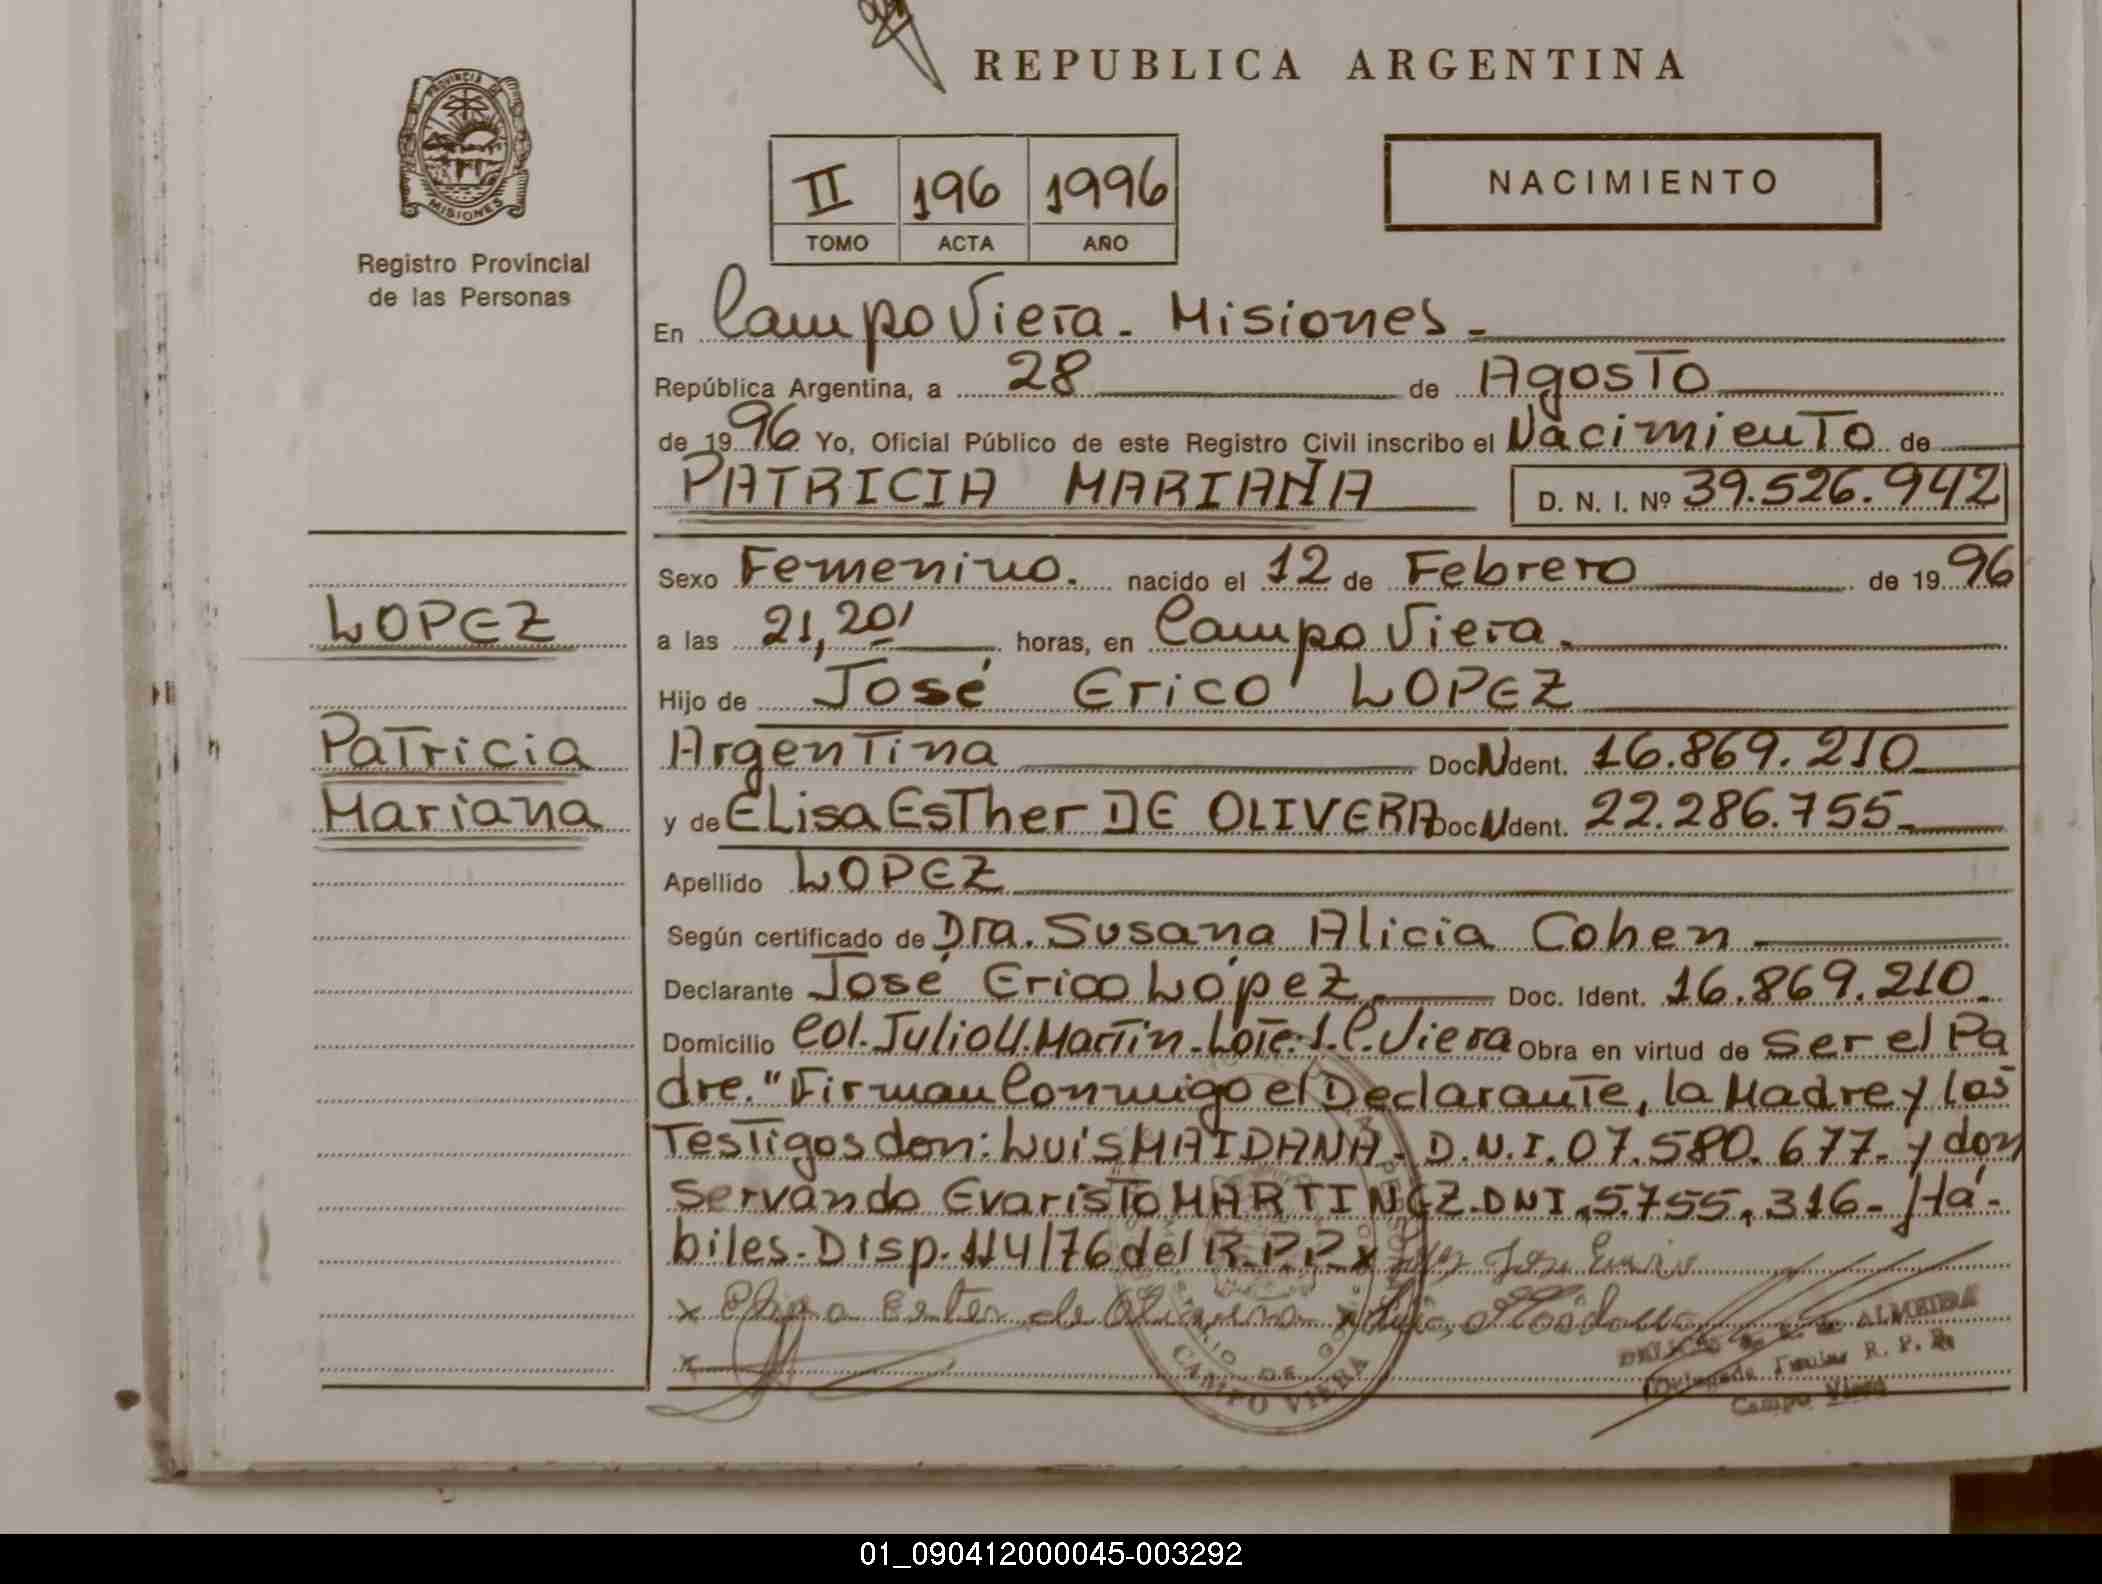 REPUBLICA ARGENTINA
PROVINCIA DE
MISIONES
Registro Provincial
de las Personas
II 196 1996
TOMO ACTA AÑO
NACIMIENTO
En Campo Viera - Misiones -
República Argentina, a 28 de Agosto
de 1996 Yo, Oficial Público de este Registro Civil inscribo el Nacimiento de
PATRICIA MARIANA D. N. I. Nº 39.526.942
Sexo Femenino. nacido el 12 de Febrero de 1996
LOPEZ
a las 21,20' horas, en Campo Viera.
Hijo de José Erico LOPEZ
Patricia
Argentina Doc N dent. 16.869.210
Mariana
y de ELisa EsTher DE OLIVERA Doc N dent. 22.286.755-
Apellido LOPEZ
Según certificado de Dra. Susana Alicia Cohen -
Declarante José Erico López Doc. Ident. 16.869.210-
Domicilio Col. Julio U. Martin - Lote: 1. C. Viera Obra en virtud de ser el Pa
dre." Firman Conmigo el Declarante, la Madre y los
Testigos don: Luis MAIDANA - D.N.I. 07.580.677- y don
Servando Evaristo MARTINEZ - DNI. 5.755.316- Há-
biles. Disp. 114/76 del R.P.P. x
x Elisa Ester de Olivera x
DE ALMEIDA
x
Titular R. P. P.
Campo Viera
CAMPO VIERA
01_090412000045-003292